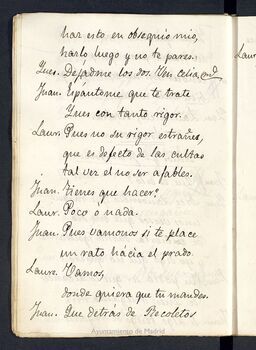 haz esto en obsequio mio,
hazlo luego y no te pares.
Ynes. Dejadme los dos. Ven Celia,
Juan. Espántome que te trate
Ynes con tanto rigor.
Laur. Pues no su rigor estrañes,
que es defecto de las cultas
tal vez el no ser afables.
Juan. tienes que hacer?
Laur. Poco o nada.
Juan. Pues vamonos si te place
un rato hácia el prado.
Laur. Vamos,
donde quiera que tu mandes.
Juan. Que detrás de Recoletos
Ayuntamiento de Madrid
Laur